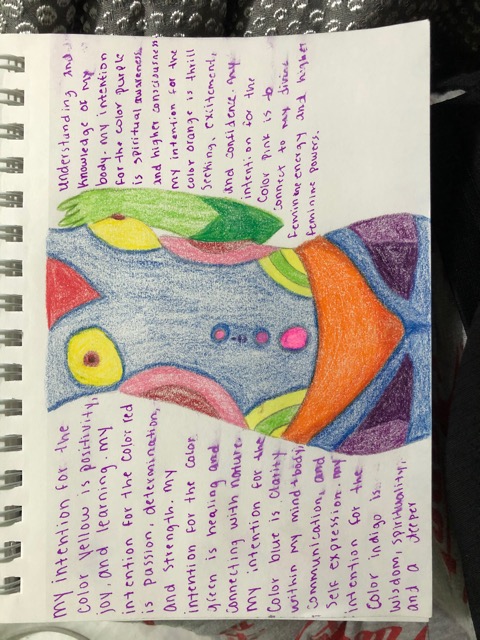 my intention for the
color yellow is positivity,
joy, and learning. my
intention for the color red
is passion, determination,
and strength. my
intention for the color
green is healing and
connecting with nature.
my intention for the
color blue is clarity
within my mind+body,
communication, and
self expression. my
intention for the
color indigo is
wisdom, spirituality,
and a deeper
understanding and
knowledge of my
body. my intention
for the color purple
is spiritual awareness
and higher consciousness
my intention for the
color orange is thrill
seeking, exiitement,
and confidence. my
intention for the
color pink is to
connect to my divine
feminine energy and higher
feminine powers.